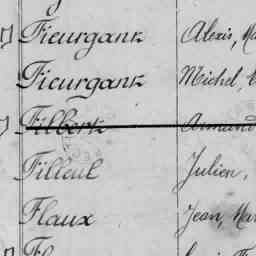 Fieurgant Alexis, Ma
Fieurgant Michel,
Filbert Armand
Filleul Julien,
Flaux Jean, Mar